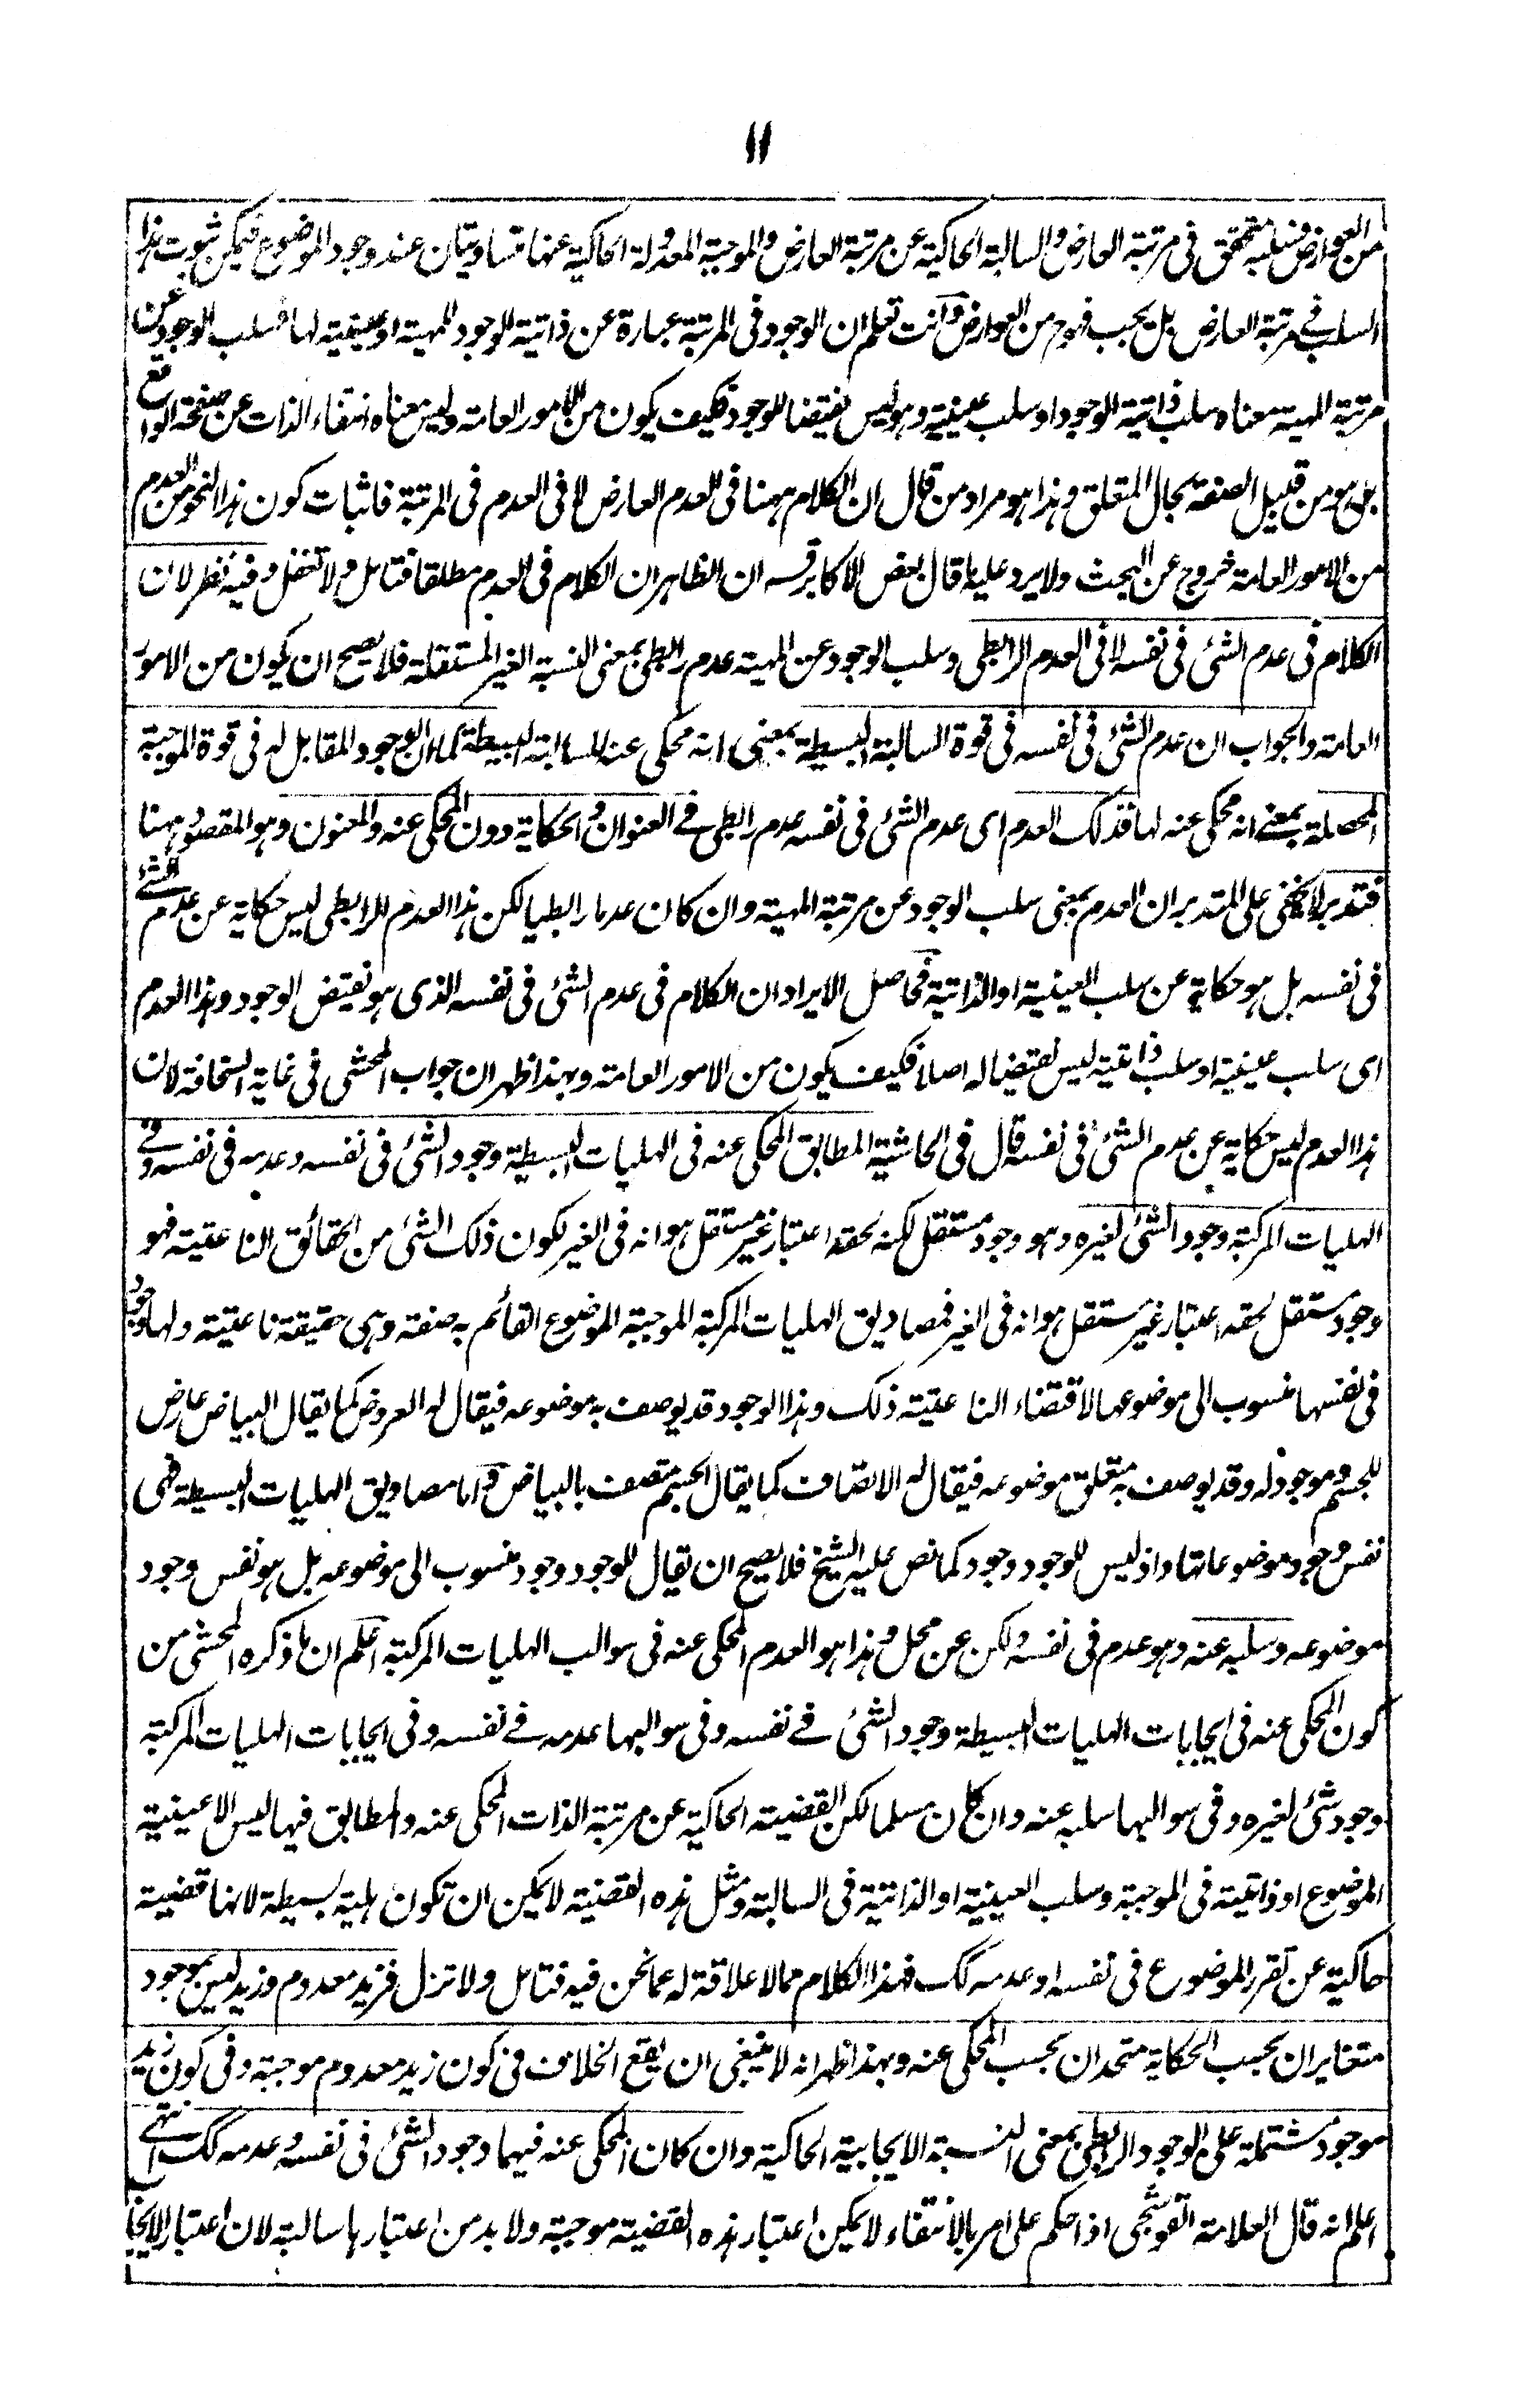 ۱۱
من العوارض فسلبه متحقق فى مرتبة العارض والسالبة الحاكية عن مرتبة العارض والموجبة المعدولة الحاكية عنها متساويتان عند وجود الموضوع فيمكن ثبوت هذا
السلب فے مرتبة العارض بل يجب فهو من العوارض وانت تعلم ان الوجود فى المرتبة عبارة عن ذاتية الوجود للمهية او عينيته لها فسلب الوجود عن
مرتبة المهية معناه سلب ذاتية الوجود او سلب عينيته وهو ليس نقيضا للوجود فكيف يكون من الامور العامة وليس معناه انتفاء الذات عن صفحة الواقع
بل هو من قبيل الصفة بحال المتعلق وهذا هو مراد من قال ان الكلام ههنا فى العدم العارض لا فى العدم فى المرتبة فاثبات كون هذا النحو من العدم
من الامور العامة خروج عن البحث ولا يرد عليه ما قال بعض الاكابر قسه ان الظاهر ان الكلام فى العدم مطلقا فتامل ولا تغفل وفيه نظر لان
الكلام فى عدم الشئ فى نفسه لا فى العدم الرابطى وسلب الوجود عن المهية عدم رابطى بمعنى النسبة الغير المستقلة فلا يصح ان يكون من الامور
العامة والجواب ان عدم الشئ فى نفسه فى قوة السالبة البسيطة بمعنى انه محكى عنه للسالبة البسيطة كما ان الوجود المقابل له فى قوة الموجبة
المحصلة بمعنے انه محكى عنه لها فذلك العدم اى عدم الشئ فى نفسه عدم رابطى فے العنوان والحكاية دون المحكى عنه والمعنون وهو المقصود ههنا
فتدبر لا يخفى على المتدبر ان العدم بمعنى سلب الوجود عن مرتبة المهية وان كان عدما رابطيا لكن هذا العدم الرابطى ليس حكاية عن عدم الشئ
فى نفسه بل هو حكاية عن سلب العينية او الذاتية فحاصل الايراد ان الكلام فى عدم الشئ فى نفسه الذى هو نقيض الوجود وهذا العدم
اى سلب عينية او سلب ذاتية ليس نقيضا له اصلا فكيف يكون من الامور العامة وبهذا ظهر ان جواب المحشى فى غاية السخافة لان
هذا العدم ليس حكاية عن عدم الشئ فى نفسه قال فى الحاشية المطابق المحكى عنه فى الهليات البسيطة وجود الشئ فى نفسه وعدمه فى نفسه وفے
الهليات المركبة وجود الشئ لغيره وهو وجود مستقل لكنه لحقه اعتبار غير مستقل هو انه فى الغير لكون ذلك الشئ من الحقائق الناعتية فهو
وجود مستقل لحقه اعتبار غير مستقل هو انه فى الغير فمصاديق الهليات المركبة الموجبة الموضوع القائم به صفته وهى حقيقة ناعتية ولها وجود
فى نفسها منسوب الى موضوعها لاقتضاء الناعتية ذلك وهذا الوجود قد يوصف به موضوعه فيقال له العروض كما يقال البياض عارض
للجسم وموجود له وقد يوصف به متعلق موضوعه فيقال له الاتصاف كما يقال الجسم متصف بالبياض واما مصاديق الهليات البسيطة فهى
نفس وجود موضوعاتها واذ ليس للوجود وجود كما نص عليه الشيخ فلا يصح ان يقال للوجود وجود منسوب الى موضوعه بل هو نفس وجود
موضوعه وسلبه عنه وهو عدم فى نفسه ولكن عن محل وهذا هو العدم المحكى عنه فى سوالب الهليات المركبة اعلم ان ما ذكره المحشى من
كون المحكى عنه فى ايجابات الهليات البسيطة وجود الشئ فے نفسه وفى سوالبها عدمه فے نفسه وفى ايجابات الهليات المركبة
وجود شئ لغيره وفى سوالبها سلبه عنه وان كان مسلما لكن القضية الحاكية عن مرتبة الذات المحكى عنه والمطابق فيها ليس الا عينية
الموضوع او ذاتيته فى الموجبة وسلب العينية او الذاتية فى السالبة ومثل هذه القضية لا يمكن ان تكون هلية بسيطة لانها قضية
حاكية عن تقرر الموضوع فى نفسه او عدمه كك فهذا الكلام مما لا علاقة له عما نحن فيه فتامل ولا تزل فزيد معدوم وزيد ليس بموجود
متغايران بحسب الحكاية متحدان بحسب المحكى عنه وبهذا ظهر انه لا ينبغى ان يقع الخلاف فى كون زيد معدوم موجبة وفى كون زيد
موجود مشتملة على الوجود الرابطى بمعنى النسبة الايجابية الحاكية وان كان المحكى عنه فيهما وجود الشئ فى نفسه وعدمه كك انتهے
اعلم انه قال العلامة القوشجى اذا حكم على امر بالانتفاء لا يمكن اعتبار هذه القضية موجبة ولا بد من اعتبارها سالبة لان اعتبار الايجا